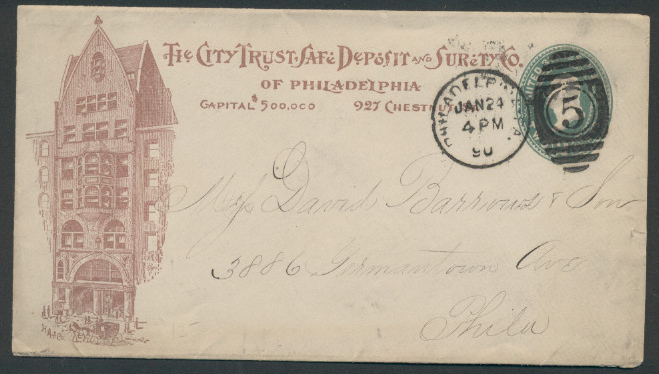 The City Trust, Safe Deposit and Surety Co.
OF PHILADELPHIA
CAPITAL $500,000 927 CHESTNUT
PHILADELPHIA, PA.
JAN 24
4 PM
90
5
Mess David Barrows & Son
3886 Germantown Ave
Phila